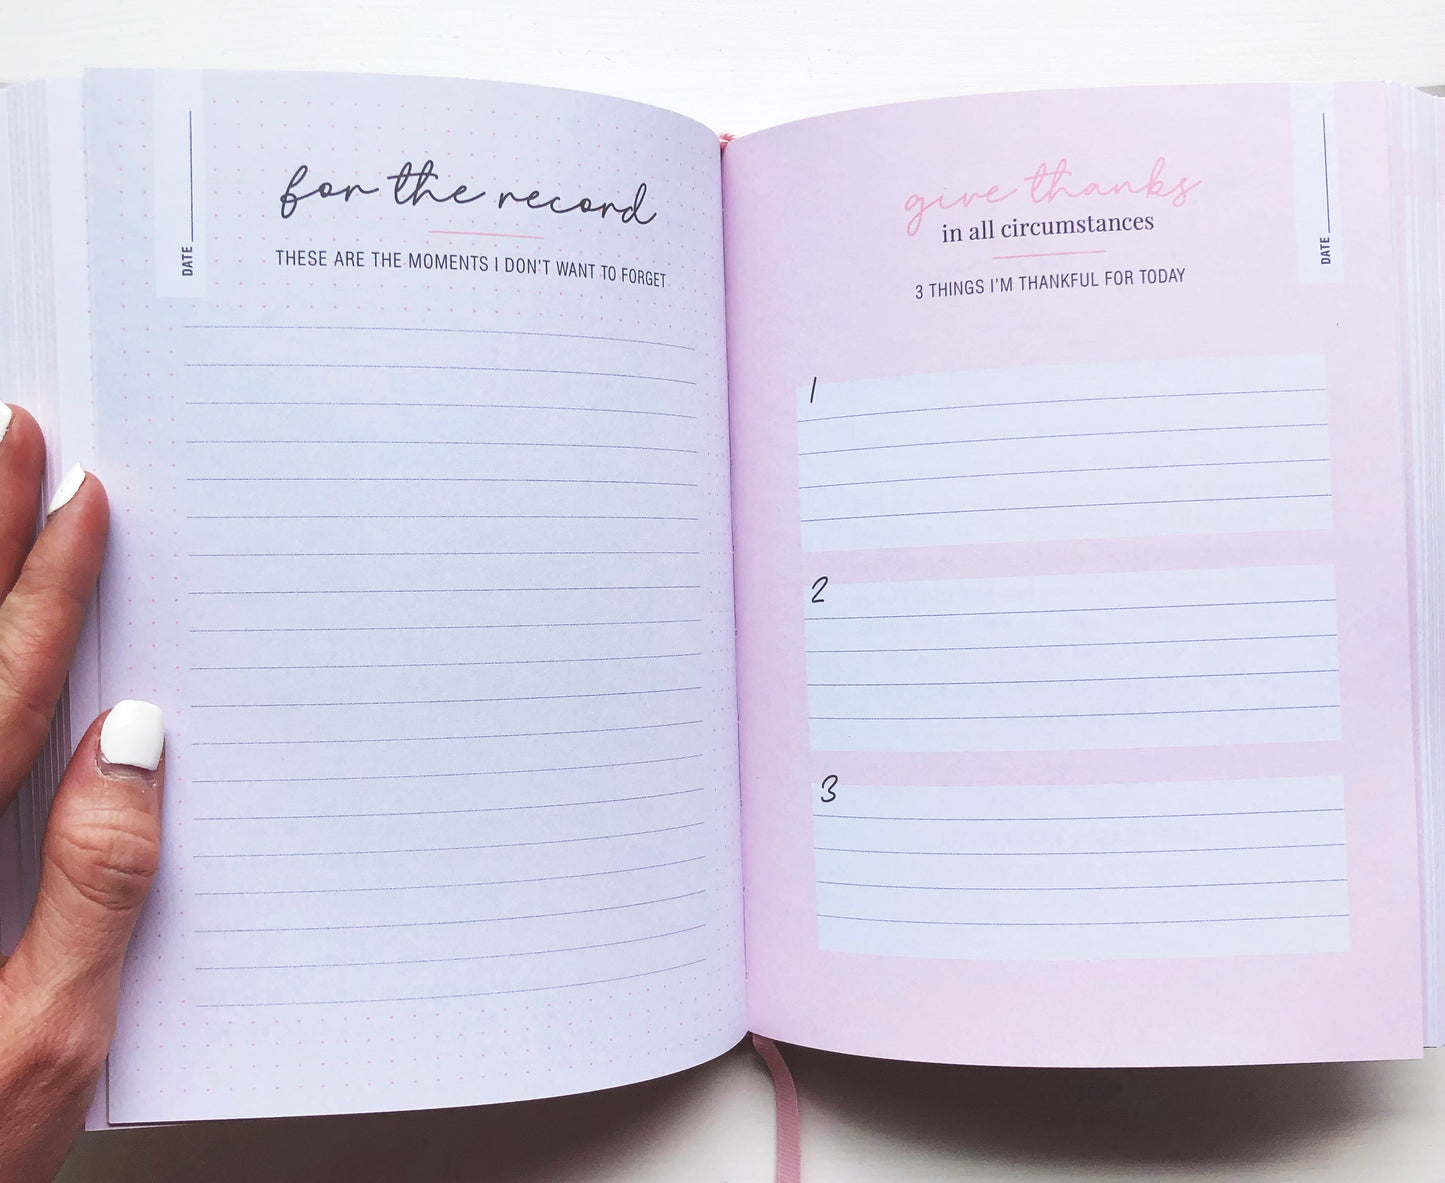 DATE
for the record
THESE ARE THE MOMENTS I DON'T WANT TO FORGET
give thanks
in all circumstances
3 THINGS I'M THANKFUL FOR TODAY
DATE
1
2
3